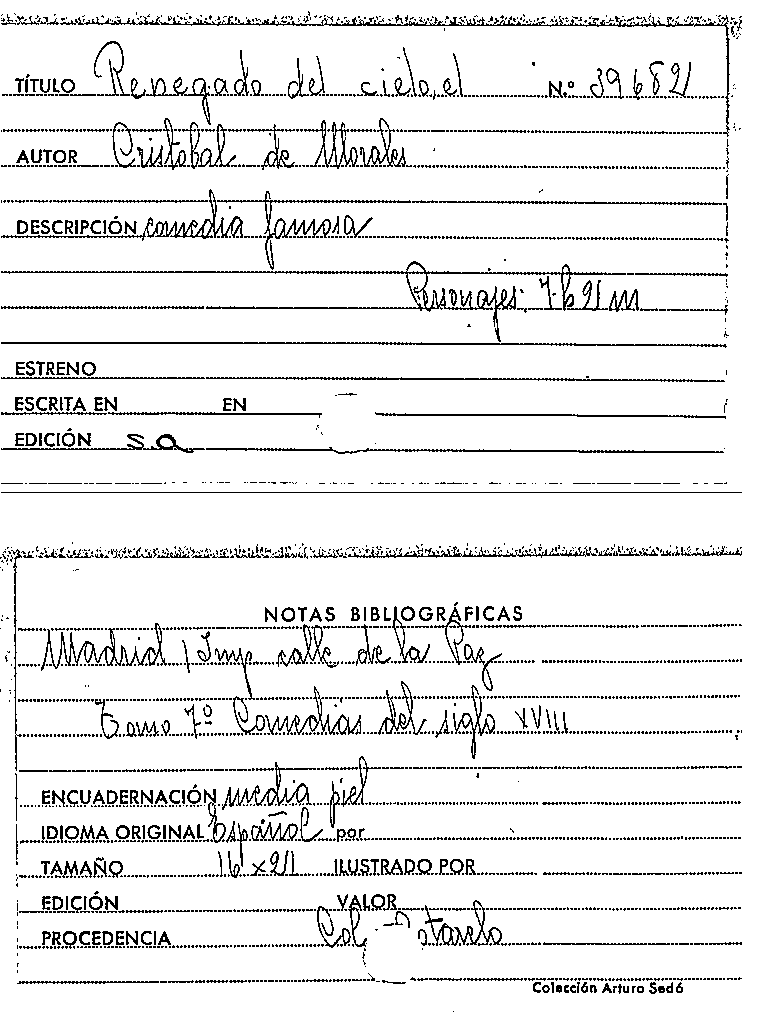 TÍTULO Renegado del cielo, el N.º 39682
AUTOR Cristobal de Morales
DESCRIPCIÓN comedia famosa
Personajes: 7 h 2 m
ESTRENO
ESCRITA EN EN
EDICIÓN s.a
NOTAS BIBLIOGRÁFICAS
Madrid / Imp calle de la Paz
Tomo 7º Comedias del siglo XVIII
ENCUADERNACIÓN media piel
IDIOMA ORIGINAL Español por
TAMAÑO 16 x 21 ILUSTRADO POR
EDICIÓN VALOR
PROCEDENCIA Col
Colección Arturo Sedó